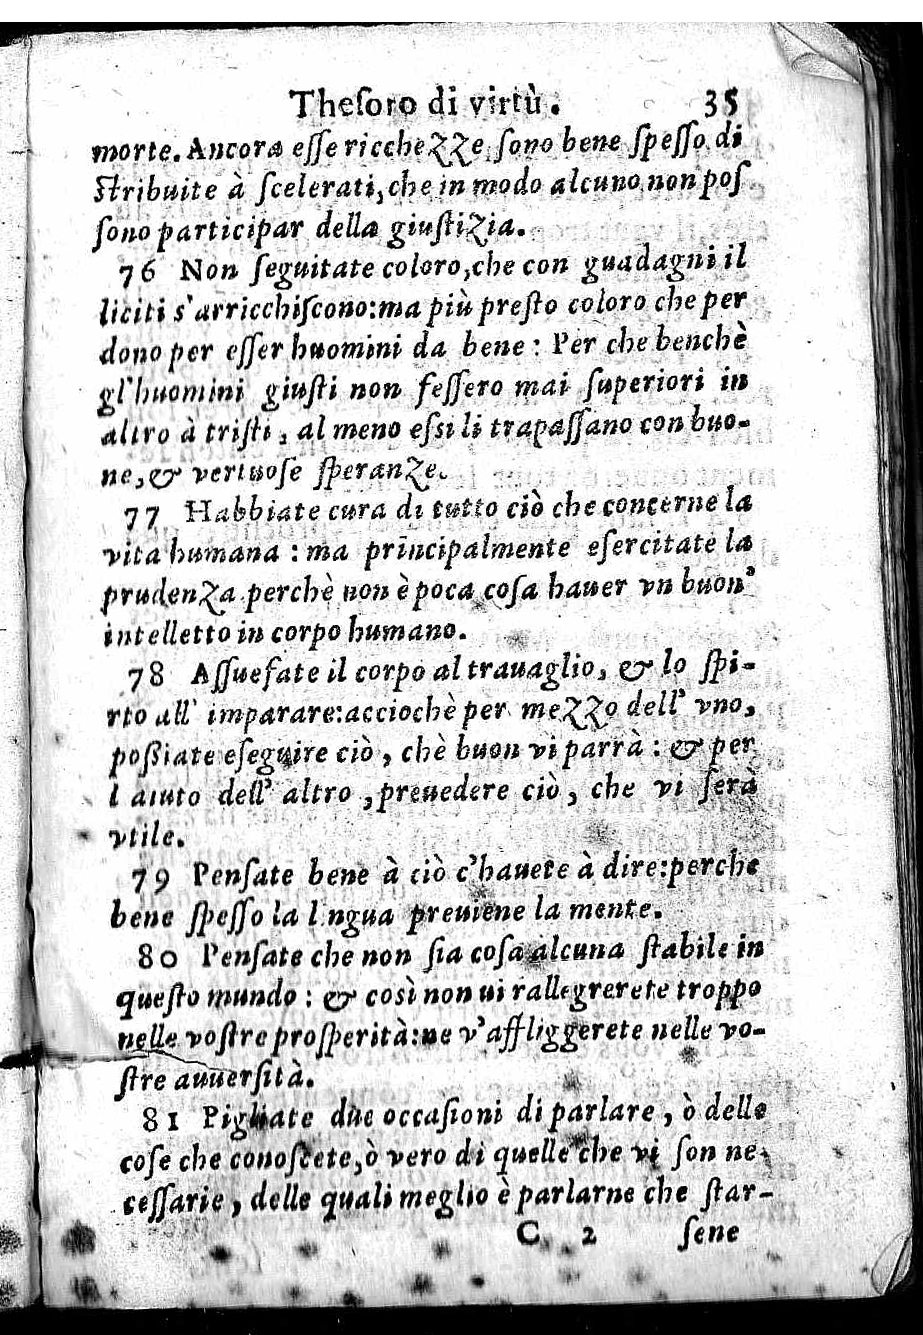 Theſoro di virtù. 35
morte. Ancora eſſe ricchezze ſono bene ſpeſſo di
ſtribuite à ſcelerati, che in modo alcuno non poſ
ſono participar della giuſtizia.
76 Non ſeguitate coloro, che con guadagni il
liciti s'arricchiſcono: ma più preſto coloro che per
dono per eſſer huomini da bene: Per che benchè
gl'huomini giuſti non feſſero mai ſuperiori in
altro à triſti, al meno eſsi li trapaſſano con buo-
ne, & vertuoſe ſperanze.
77 Habbiate cura di tutto ciò che concerne la
vita humana: ma principalmente eſercitate la
prudenza perchè non è poca coſa hauer vn buon'
intelletto in corpo humano.
78 Aſſuefate il corpo al trauaglio, & lo ſpi-
rto all' imparare: acciochè per mezzo dell' vno,
poßiate eſeguire ciò, chè buon vi parrà: & per
l aiuto dell' altro, preuedere ciò, che vi ſerà
vtile.
79 Penſate bene à ciò c'hauete à dire: perche
bene ſpeſſo la l ngua preuiene la mente.
80 Penſate che non ſia coſa alcuna ſtabile in
queſto mundo: & così non ui rallegrerete troppo
nelle voſtre proſperità: ne v'affliggerete nelle vo-
ſtre auuerſità.
81 Pigliate due occaſioni di parlare, ò delle
coſe che conoſcete, ò vero di quelle che vi ſon ne-
ceſſarie, delle quali meglio è parlarne che ſtar-
C 2 ſene